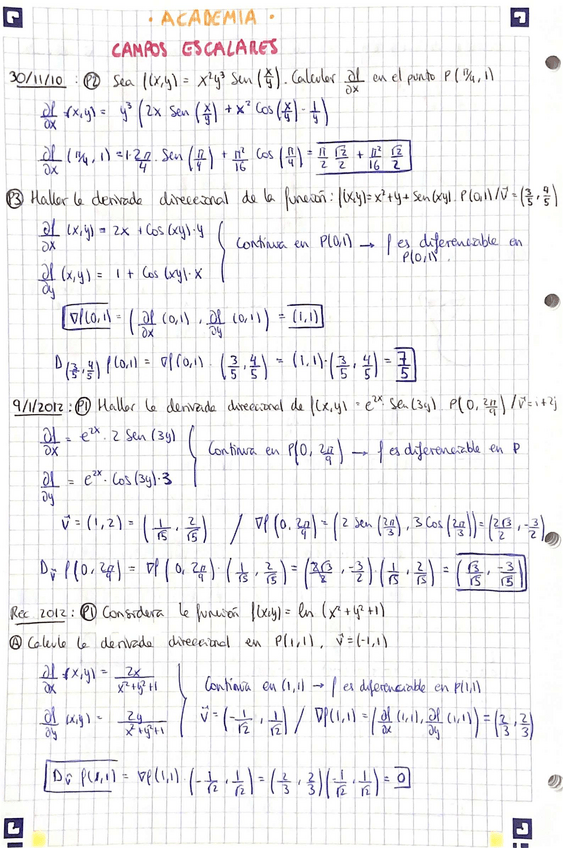 · ACADEMIA ·
CAMPOS ESCALARES
30/11/10 : P2 Sea f(x,y) = x²y³ Sen (x/y). Calcular ∂f/∂x en el punto P(π/4, 1)
∂f/∂x (x,y) = y³ (2x Sen (x/y) + x² Cos (x/y) · 1/y)
∂f/∂x (π/4, 1) = 1·2π/4 · Sen (π/4) + π²/16 Cos (π/4) = π/2 √2/2 + π²/16 √2/2
P3 Hallar la derivada direccional de la función: f(x,y) = x² + y + Sen(xy). P(0,1) / v⃗ = (3/5, 4/5)
∂f/∂x (x,y) = 2x + Cos(xy)·y
Continua en P(0,1) → f es diferenciable en P(0,1).
∂f/∂y (x,y) = 1 + Cos(xy)·x
∇f(0,1) = (∂f/∂x (0,1), ∂f/∂y (0,1)) = (1,1)
D(3/5, 4/5) f(0,1) = ∇f(0,1) · (3/5, 4/5) = (1,1)·(3/5, 4/5) = 7/5
9/1/2012 : P1 Hallar la derivada direccional de f(x,y) = e²ˣ · Sen(3y) P(0, 2π/9) / v⃗ = i + 2j
∂f/∂x = e²ˣ · 2 Sen(3y)
Continua en P(0, 2π/9) → f es diferenciable en P
∂f/∂y = e²ˣ · Cos(3y)·3
v⃗ = (1,2) = (1/√5, 2/√5) / ∇f(0, 2π/9) = (2 Sen(2π/3), 3 Cos(2π/3)) = (2√3/2, -3/2)
Dv⃗ f(0, 2π/9) = ∇f(0, 2π/9) · (1/√5, 2/√5) = (2√3/2, -3/2)·(1/√5, 2/√5) = (√3/√5, -3/√5)
Rec 2012 : P1 Considera la función f(x,y) = ln (x² + y² + 1)
A Calcule la derivada direccional en P(1,1), v⃗ = (-1,1)
∂f/∂x (x,y) = 2x/x²+y²+1
Continua en (1,1) → f es diferenciable en P(1,1)
∂f/∂y (x,y) = 2y/x²+y²+1
v⃗ = (-1/√2, 1/√2) / ∇f(1,1) = (∂f/∂x (1,1), ∂f/∂y (1,1)) = (2/3, 2/3)
Dv⃗ f(1,1) = ∇f(1,1) · (-1/√2, 1/√2) = (2/3, 2/3)(-1/√2, 1/√2) = 0